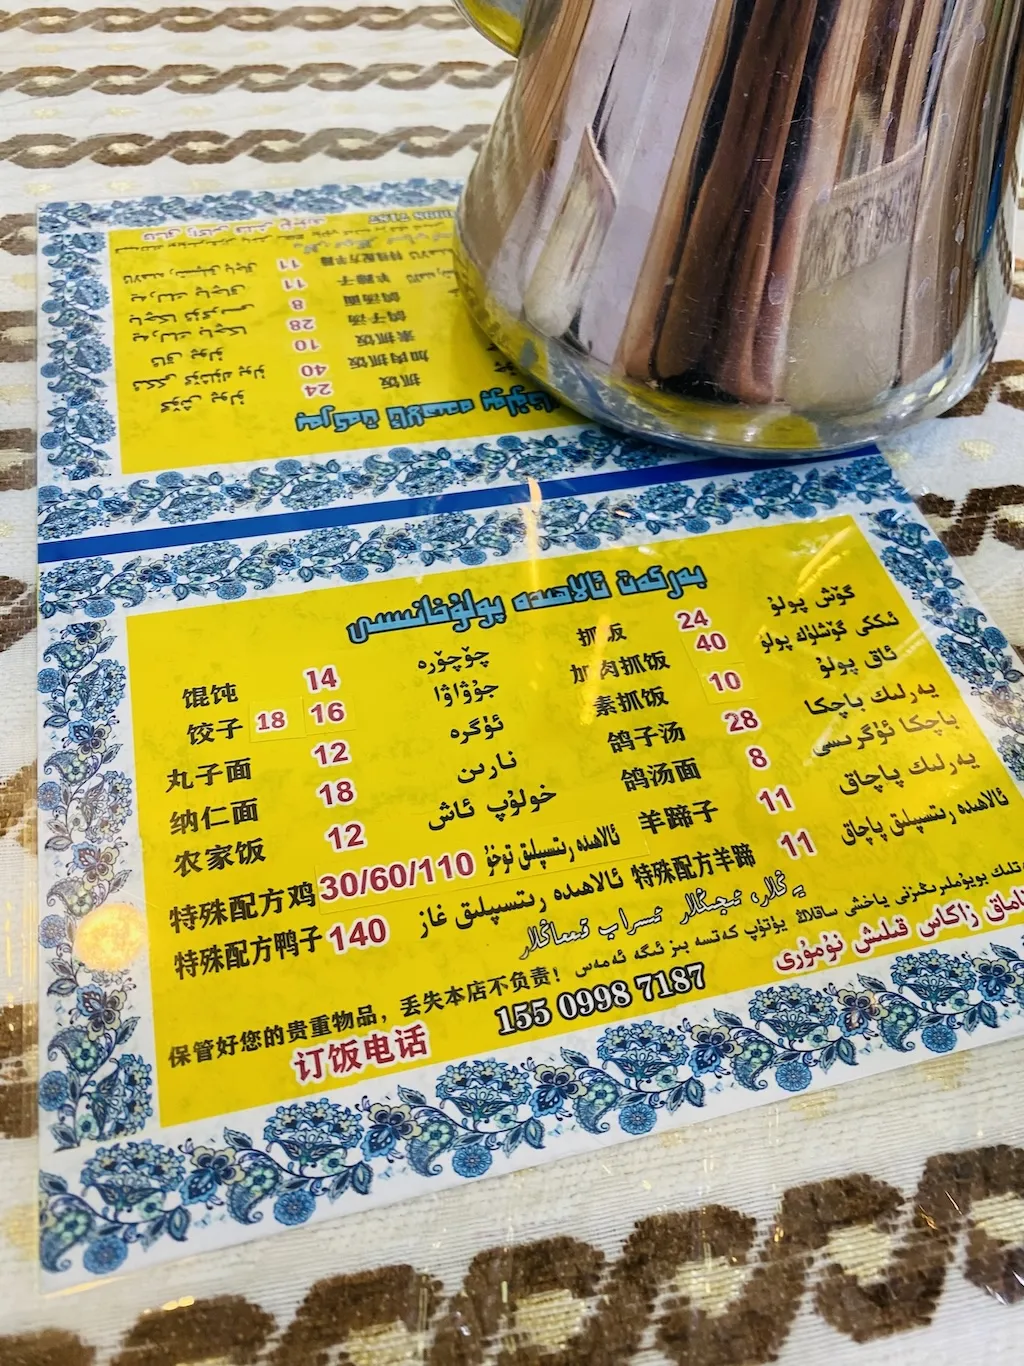 بەرىكەت ئالاھىدە پولۇخانىسى
抓饭 24 گۆش پولۇ
加肉抓饭 40 ئىككى گۆشلۈك پولۇ
素抓饭 10 ئاق پولۇ
鸽子汤 28 يەرلىك باچكا
鸽汤面 8 باچكا ئۈگرىسى
羊蹄子 11 يەرلىك پاچاق
特殊配方羊蹄 11 ئالاھىدە رىتسىپلىق پاچاق
馄饨 14 چۆچۆرە
饺子 18 16 جۇۋاۋا
丸子面 12 ئۈگرە
纳仁面 18 نارىن
农家饭 12 خولۇپ ئاش
特殊配方鸡 30/60/110 ئالاھىدە رىتسىپلىق توخۇ
特殊配方鸭子 140 ئالاھىدە رىتسىپلىق غاز
يەڭلار، ئىچىڭلار ئىسراپ قىلماڭلار
保管好您的贵重物品，丢失本店不负责！ بويۇملىرىڭىزنى ياخشى ساقلاڭ يۈتۈپ كەتسە بىز ئىگە ئەمەس
订饭电话 155 0998 7187 تاماق زاكاس قىلىش نۇمۇرى
抓饭 24 گۆش پولۇ
加肉抓饭 40 ئىككى گۆشلۈك پولۇ
素抓饭 10 ئاق پولۇ
鸽子汤 28 يەرلىك باچكا
鸽汤面 8 باچكا ئۈگرىسى
羊蹄子 11 يەرلىك پاچاق
特殊配方羊蹄 11